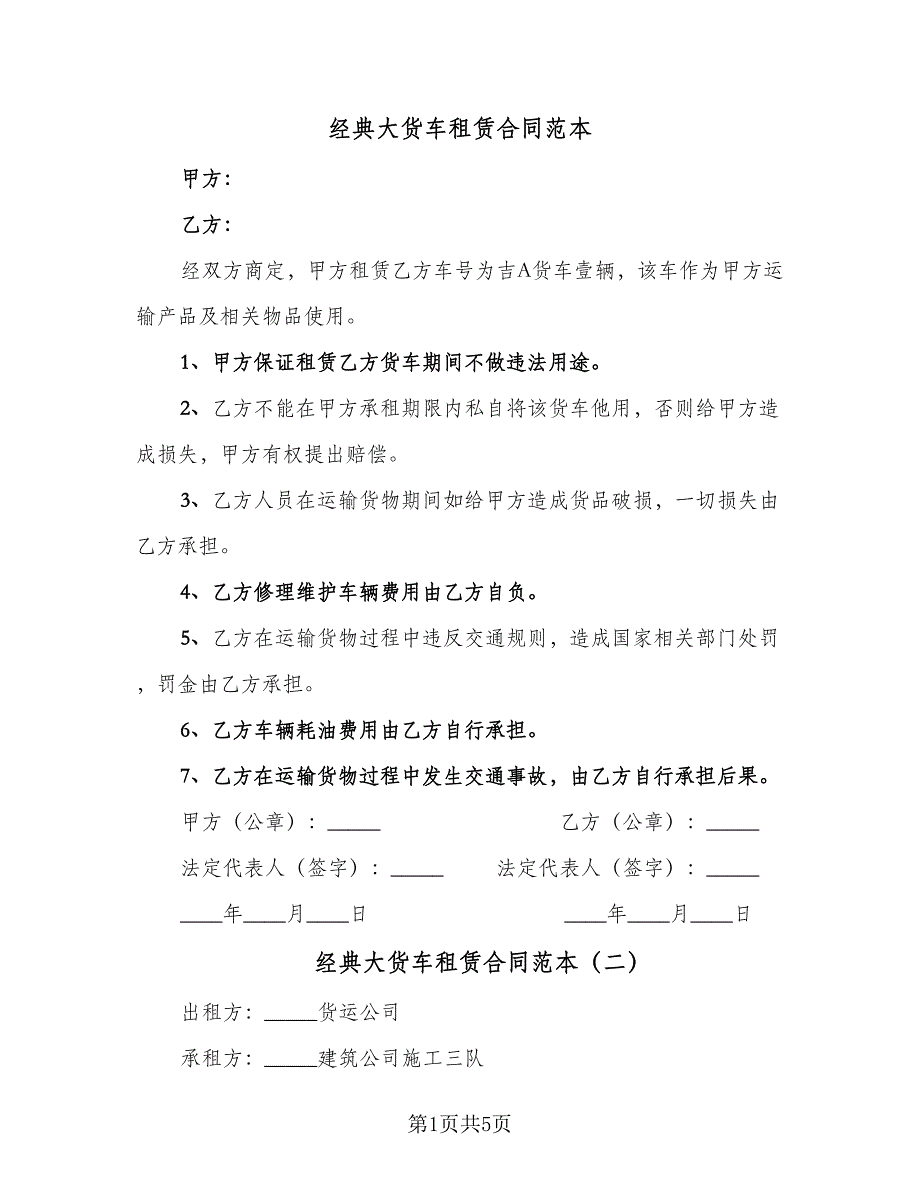 经典大货车租赁合同范本
甲方：
乙方：
经双方商定，甲方租赁乙方车号为吉A货车壹辆，该车作为甲方运
输产品及相关物品使用。
1、甲方保证租赁乙方货车期间不做违法用途。
2、乙方不能在甲方承租期限内私自将该货车他用，否则给甲方造
成损失，甲方有权提出赔偿。
3、乙方人员在运输货物期间如给甲方造成货品破损，一切损失由
乙方承担。
4、乙方修理维护车辆费用由乙方自负。
5、乙方在运输货物过程中违反交通规则，造成国家相关部门处罚
，罚金由乙方承担。
6、乙方车辆耗油费用由乙方自行承担。
7、乙方在运输货物过程中发生交通事故，由乙方自行承担后果。
甲方（公章）：_____ 乙方（公章）：_____
法定代表人（签字）：_____ 法定代表人（签字）：_____
____年____月____日 ____年____月____日
经典大货车租赁合同范本（二）
出租方：_____货运公司
承租方：_____建筑公司施工三队
第1页共5页